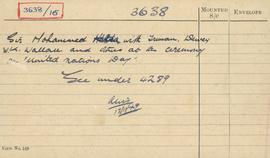 3638/16
3638
MOUNTED S/C
ENVELOPE
Sir Mohammed with Truman, Dewey
Wallace and others at the ceremony
on "United Nations Day".
See under 4289